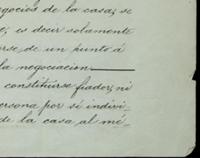 egocios de la casa; se
e, es decir solamente
erse de un punto á
la negociacion
constituirse fiador, ni
ersona por sí indivi-
de la casa al mé-